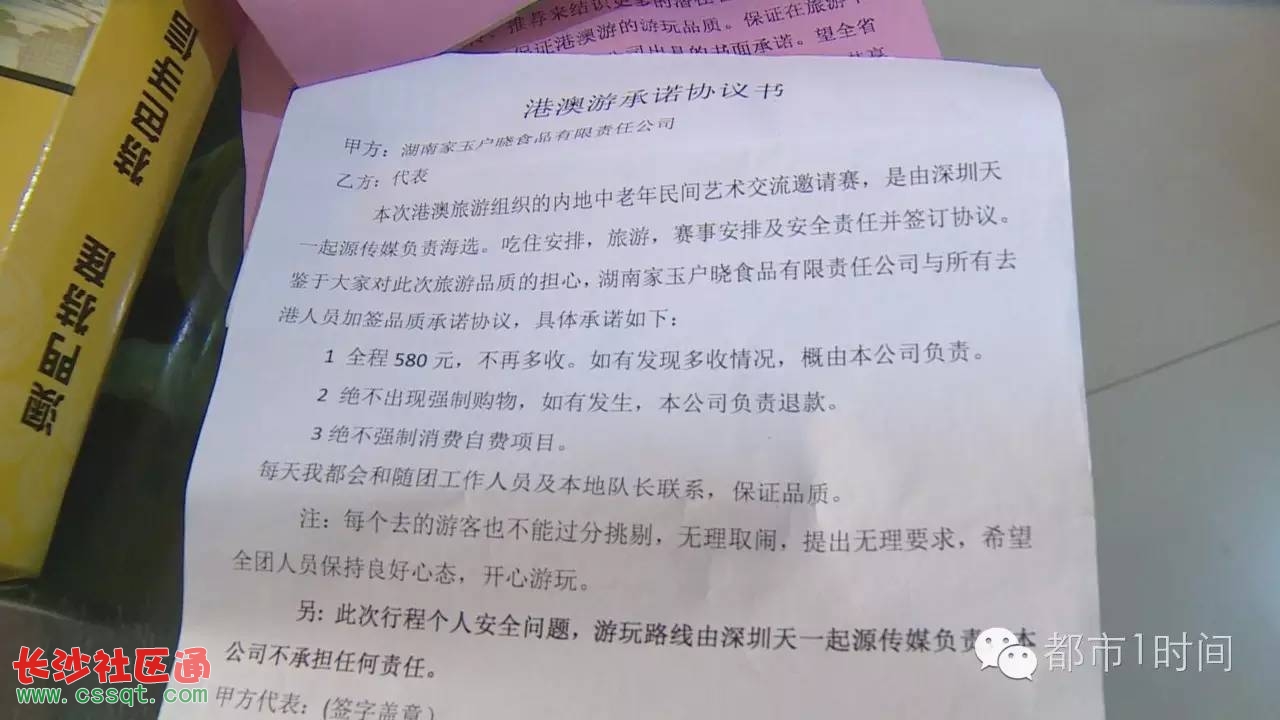 推荐来结识更多的潜在
保证港澳游的游玩品质。保证在旅游
公司出具的书面承诺。望全省
港澳游承诺协议书
甲方：湖南家玉户晓食品有限责任公司
乙方：代表
本次港澳旅游组织的内地中老年民间艺术交流邀请赛，是由深圳天
一起源传媒负责海选。吃住安排，旅游，赛事安排及安全责任并签订协议。
鉴于大家对此次旅游品质的担心，湖南家玉户晓食品有限责任公司与所有去
港人员加签品质承诺协议，具体承诺如下：
1 全程580元，不再多收。如有发现多收情况，概由本公司负责。
2 绝不出现强制购物，如有发生，本公司负责退款。
3绝不强制消费自费项目。
每天我都会和随团工作人员及本地队长联系，保证品质。
注：每个去的游客也不能过分挑剔，无理取闹，提出无理要求，希望
全团人员保持良好心态，开心游玩。
另：此次行程个人安全问题，游玩路线由深圳天一起源传媒负责 本
公司不承担任何责任。
甲方代表：(签字盖章)
澳門特產
都市1时间
长沙社区通
www.cssqt.com